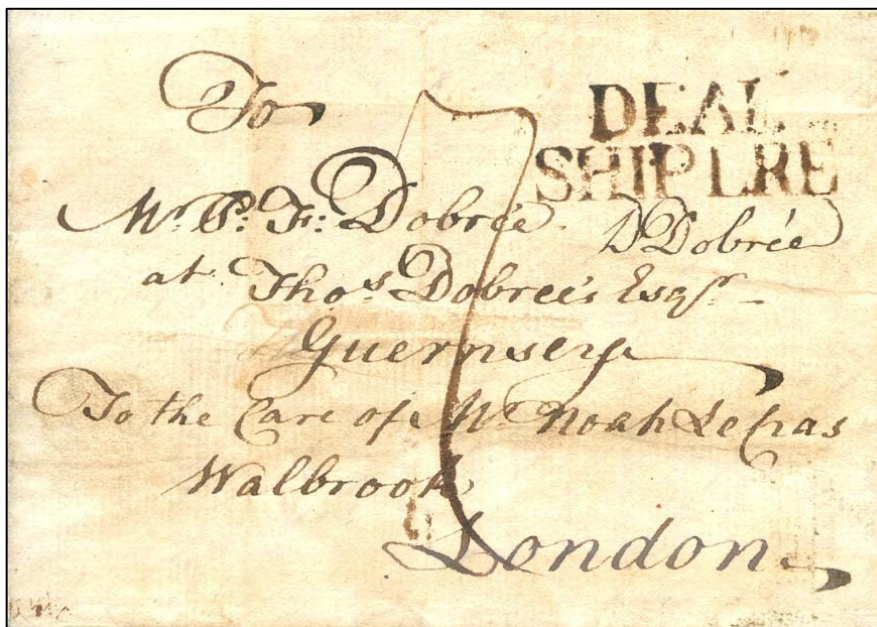 To
DEAL
SHIP LRE
Mr. P. F: Dobrée
DDobrée
at Thos. Dobrée's Esqr.
Guernsey
To the Care of Mr. Noah Le Cras
Walbrook
London.